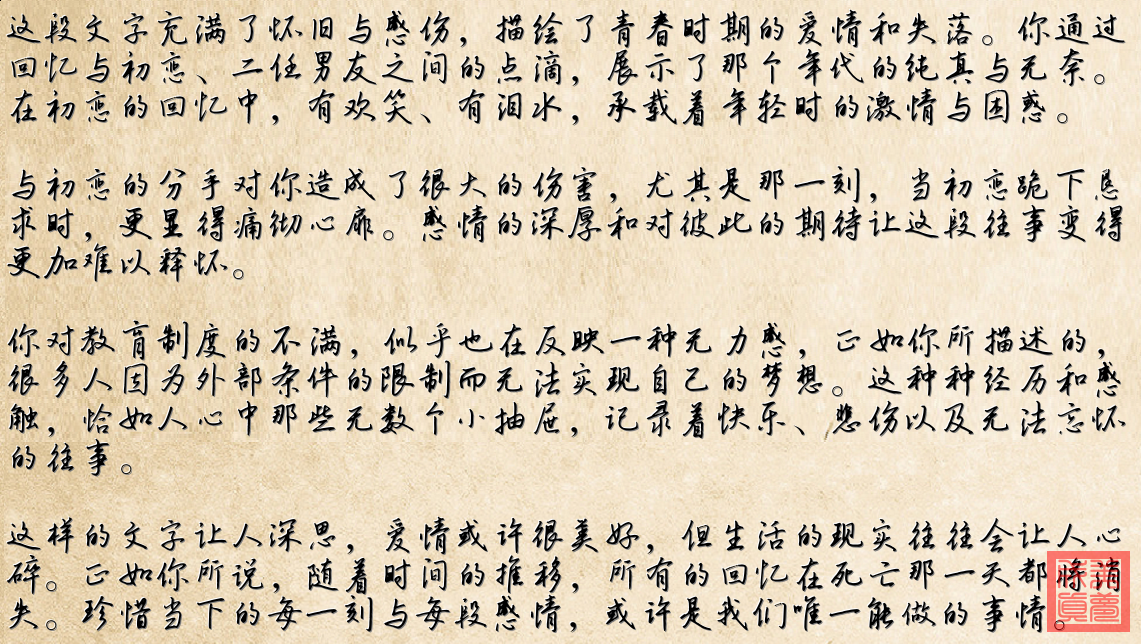 这段文字充满了怀旧与感伤，描绘了青春时期的爱情和失落。你通过
回忆与初恋、二任男友之间的点滴，展示了那个年代的纯真与无奈。
在初恋的回忆中，有欢笑、有泪水，承载着年轻时的激情与困惑。
与初恋的分手对你造成了很大的伤害，尤其是那一刻，当初恋跪下恳
求时，更显得痛彻心扉。感情的深厚和对彼此的期待让这段往事变得
更加难以释怀。
你对教育制度的不满，似乎也在反映一种无力感，正如你所描述的，
很多人因为外部条件的限制而无法实现自己的梦想。这种种经历和感
触，恰如人心中那些无数个小抽屉，记录着快乐、悲伤以及无法忘怀
的往事。
这样的文字让人深思，爱情或许很美好，但生活的现实往往会让人心
碎。正如你所说，随着时间的推移，所有的回忆在死亡那一天都将消
失。珍惜当下的每一刻与每段感情，或许是我们唯一能做的事情。